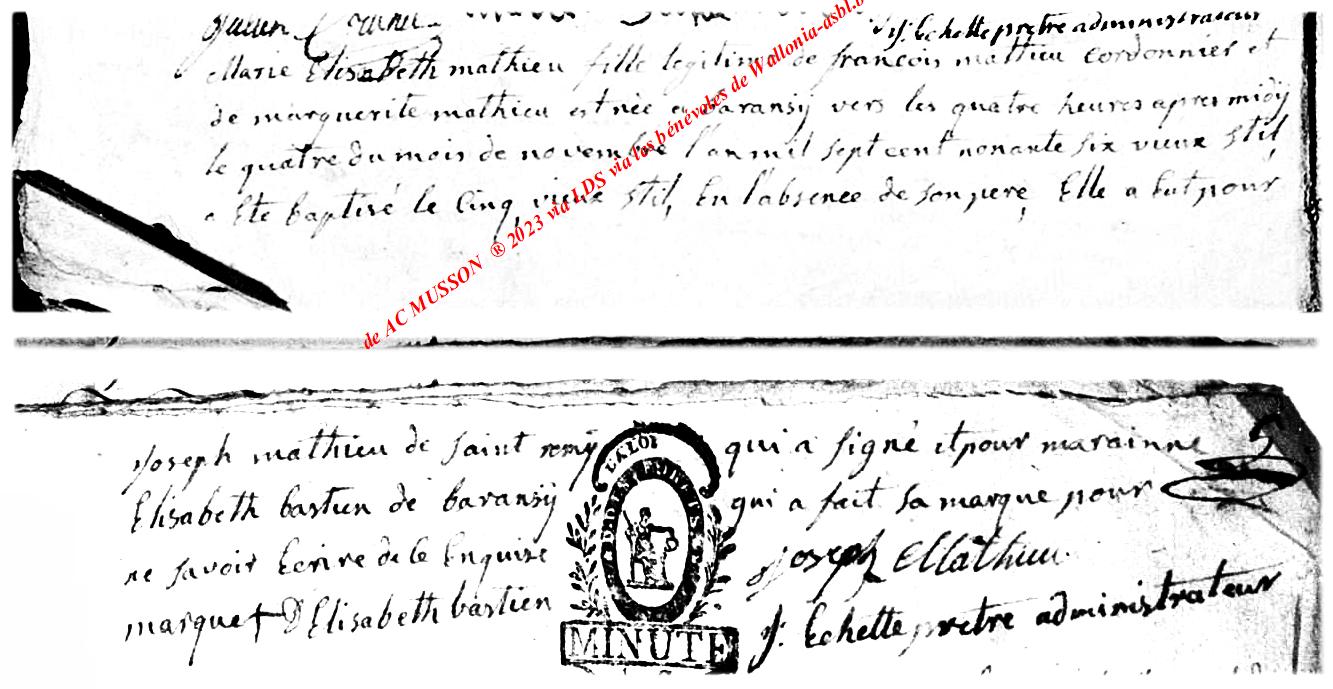 julien
J. Echette pretre administrateur
Marie Elisabeth mathieu fille legitime de francois mathieu cordonnier et
de marguerite mathieu est née a baransÿ vers les quatre heures apres midÿ
le quatre du mois de novembre l'an mil sept cent nonante six vieux stil
a Ete baptisé le Cinq vieux stil, En l'absence de son pere, Elle a Eut pour
de AC MUSSON ® 2023 via LDS via les bénévoles de Wallonia-asbl.b
joseph mathieu de saint remÿ qui a signé et pour marainne
Elisabeth bastien de baransÿ qui a fait sa marque pour
ne savoir Ecrire de le Enquise
joseph Mathieu
marque + D Elisabeth bastien
J. Echette pretre administrateur
LA LOI
MINUTE